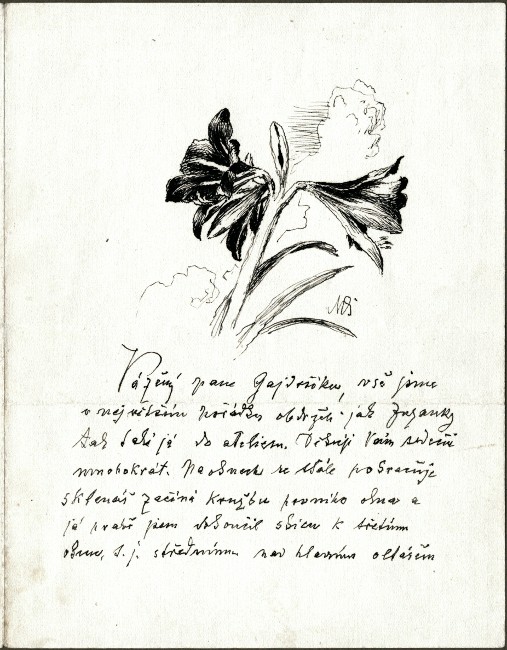 Vážený pane Gajdošíku, vše jsme
v největším pořádku obdrželi jak
tak také já do atelieru. Děkuji Vám srdečně
mnohokrát. Na oknech se stále pokračuje
sklenář začíná kresbu prvního okna a
já právě jsem dokončil skicu k třetímu
oknu, t.j. střednímu nad hlavním oltářem